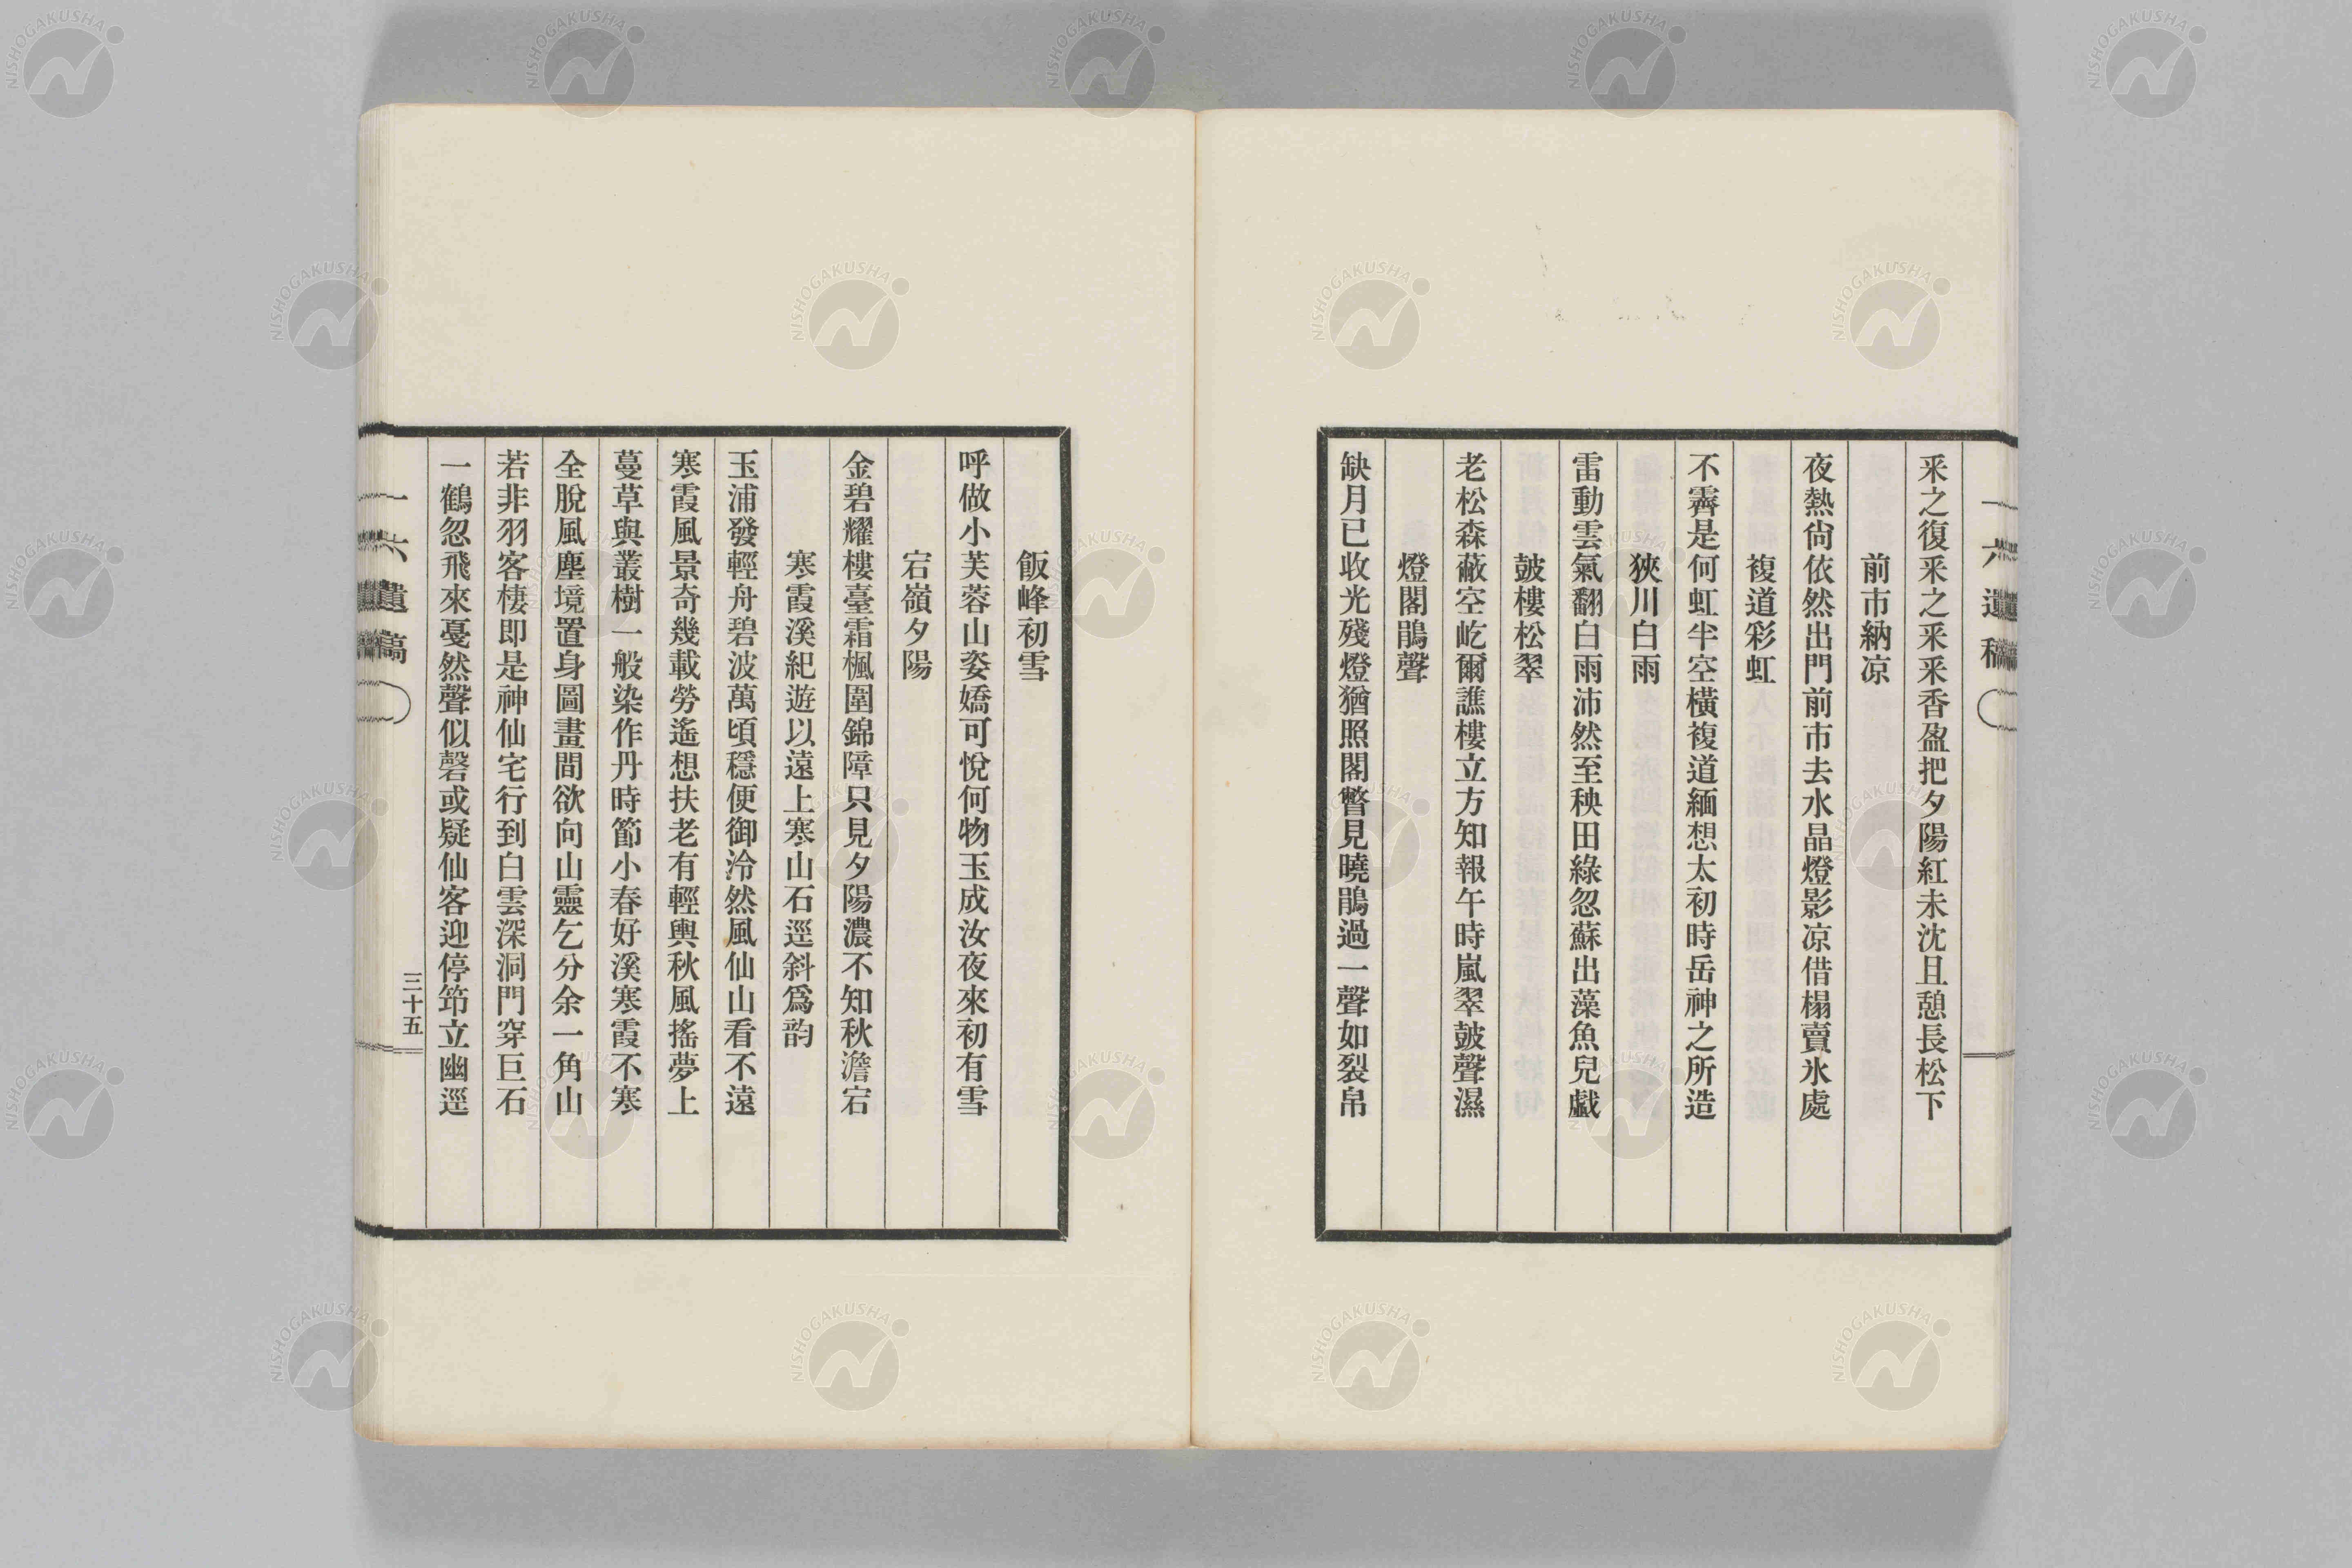 一六遺稿
采之復采之采采香盈把夕陽紅未沈且憩長松下
前市納凉
夜熱尙依然出門前市去水晶燈影凉借榻賣氷處
複道彩虹
不霽是何虹半空橫複道緬想太初時岳神之所造
狹川白雨
雷動雲氣翻白雨沛然至秧田綠忽蘇出藻魚兒戱
皷樓松翠
老松森蔽空屹爾譙樓立方知報午時嵐翠皷聲濕
燈閣鵑聲
缺月已收光殘燈猶照閣瞥見曉鵑過一聲如裂帛
飯峰初雪
呼做小芙蓉山姿嬌可悅何物玉成汝夜來初有雪
宕嶺夕陽
金碧耀樓臺霜楓圍錦障只見夕陽濃不知秋澹宕
寒霞溪紀遊以遠上寒山石逕斜爲韵
玉浦發輕舟碧波萬頃穩便御泠然風仙山看不遠
寒霞風景奇幾載勞遙想扶老有輕輿秋風搖夢上
蔓草與叢樹一般染作丹時節小春好溪寒霞不寒
全脫風塵境置身圖畫間欲向山靈乞分余一角山
若非羽客棲即是神仙宅行到白雲深洞門穿巨石
一鶴忽飛來戞然聲似磬或疑仙客迎停筇立幽逕
一六遺稿
三十五
NISHOGAKUSHA